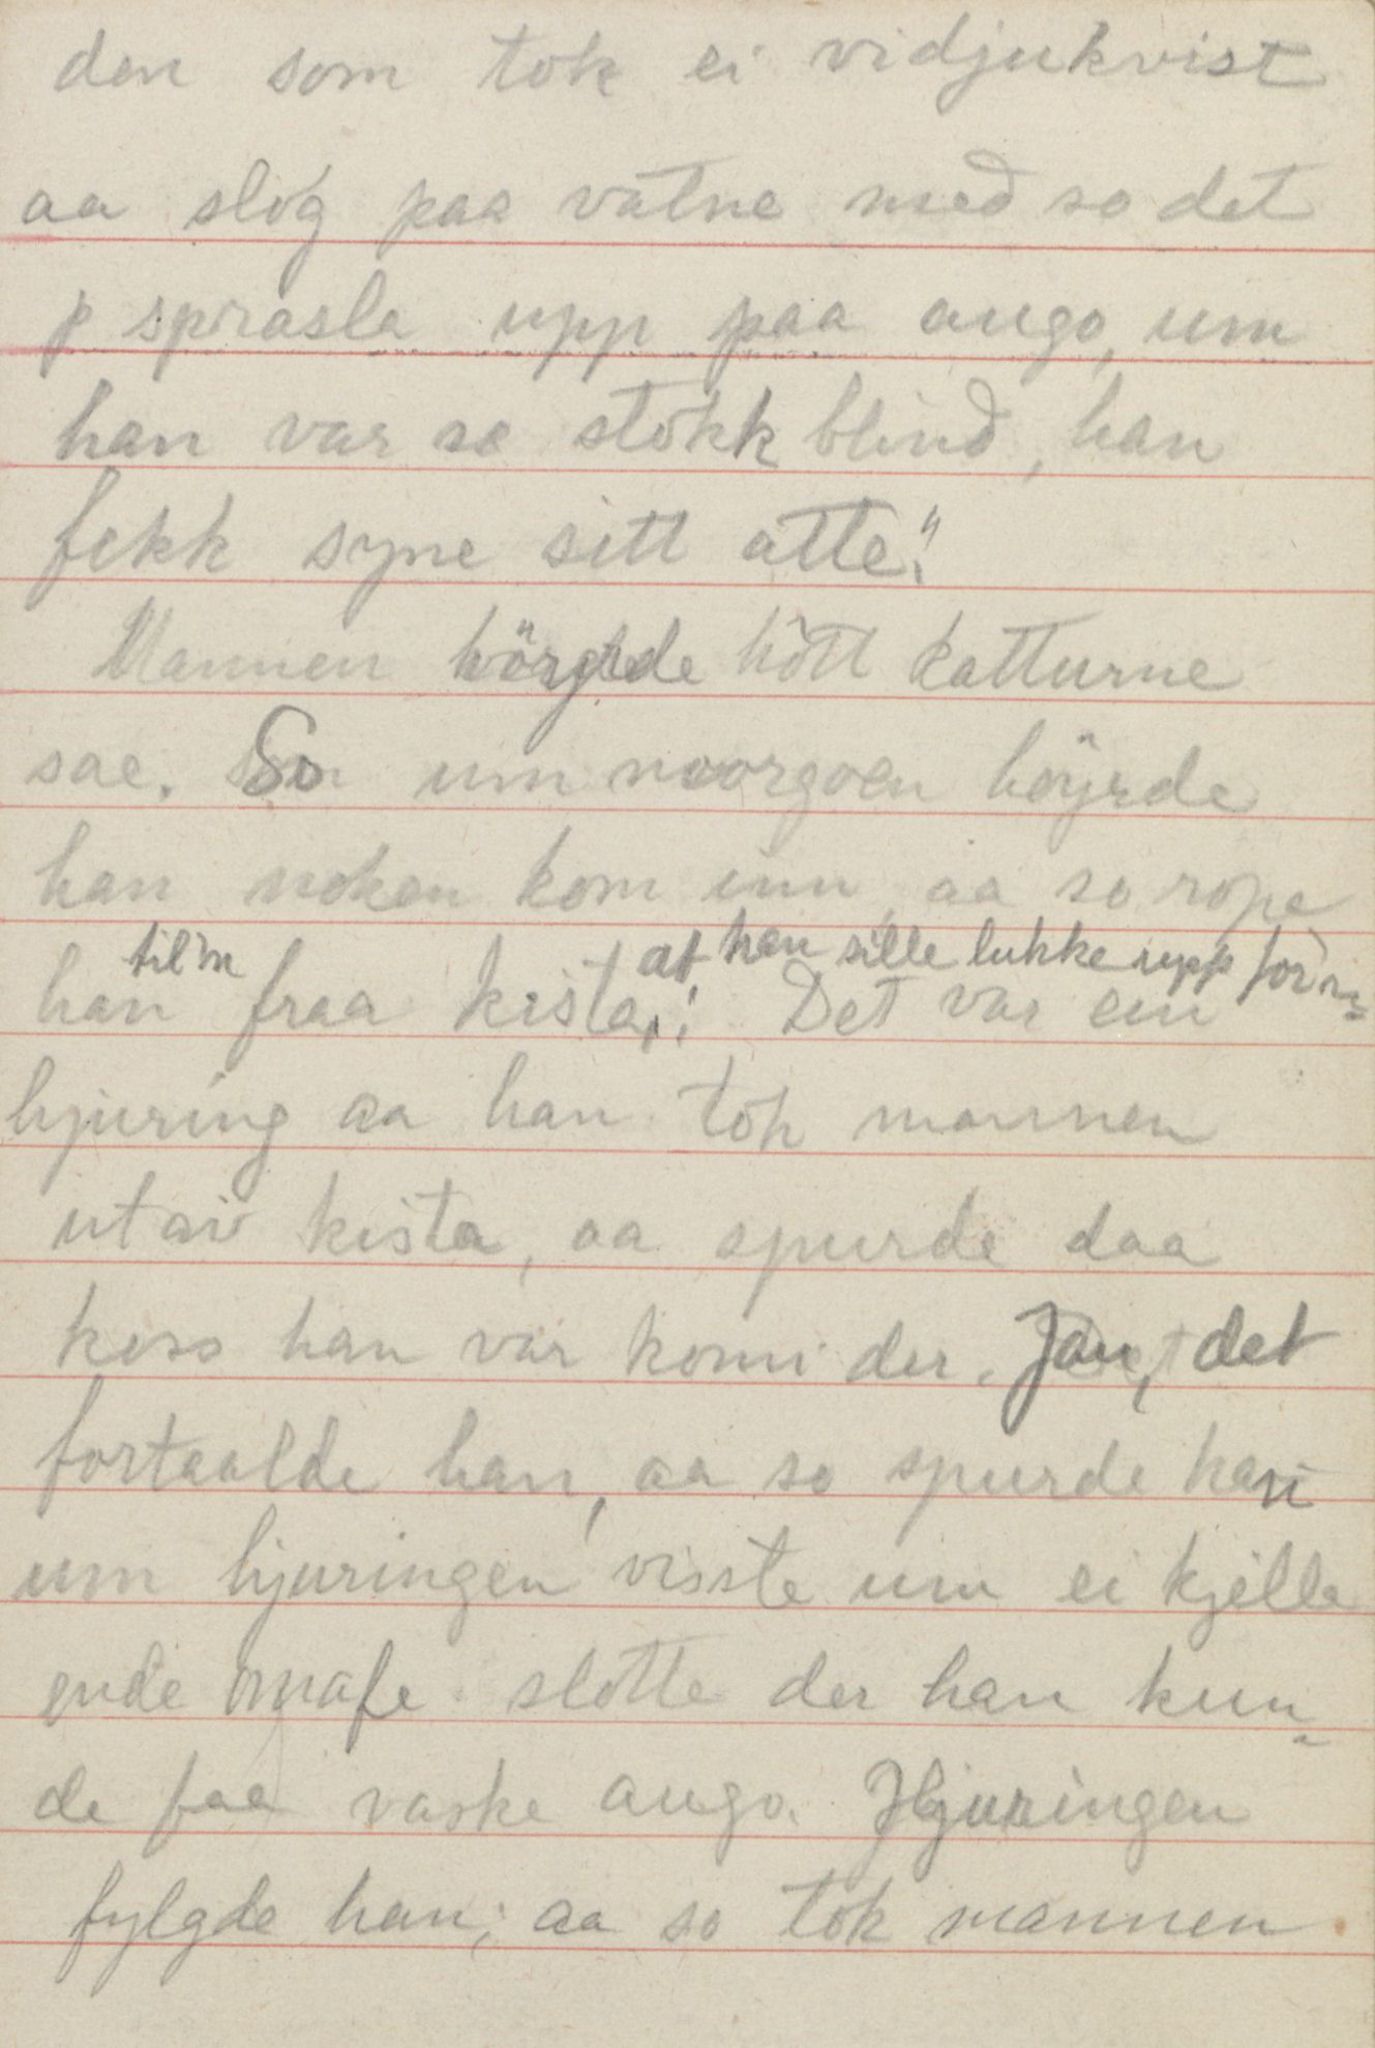 den som tok ei vidjukvist
aa slog paa vatne med so det
sprasla upp paa augo, um
han var so stokk blind, han
fekk syne sitt atte."
Mannen höyrde hött katturne
sae. So um moorgoen höyrde
han noken kom inn aa so ropa
han til'n fraa kista, at han sille lukke upp for'n.
Det var ein
hjuring aa han tok mannen
utav kista, aa spurde daa
koss han var komi der. Jau, det
fortaalde han, aa so spurde han
um hjuringen visste um ei kjella
slotte der han kun-
de faa vaske augo. Hjuringen
fylgde han; aa so tok mannen